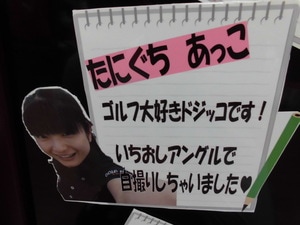 たにぐち あっこ
ゴルフ大好きドジッコです！
いちおしアングルで
自撮りしちゃいました♥